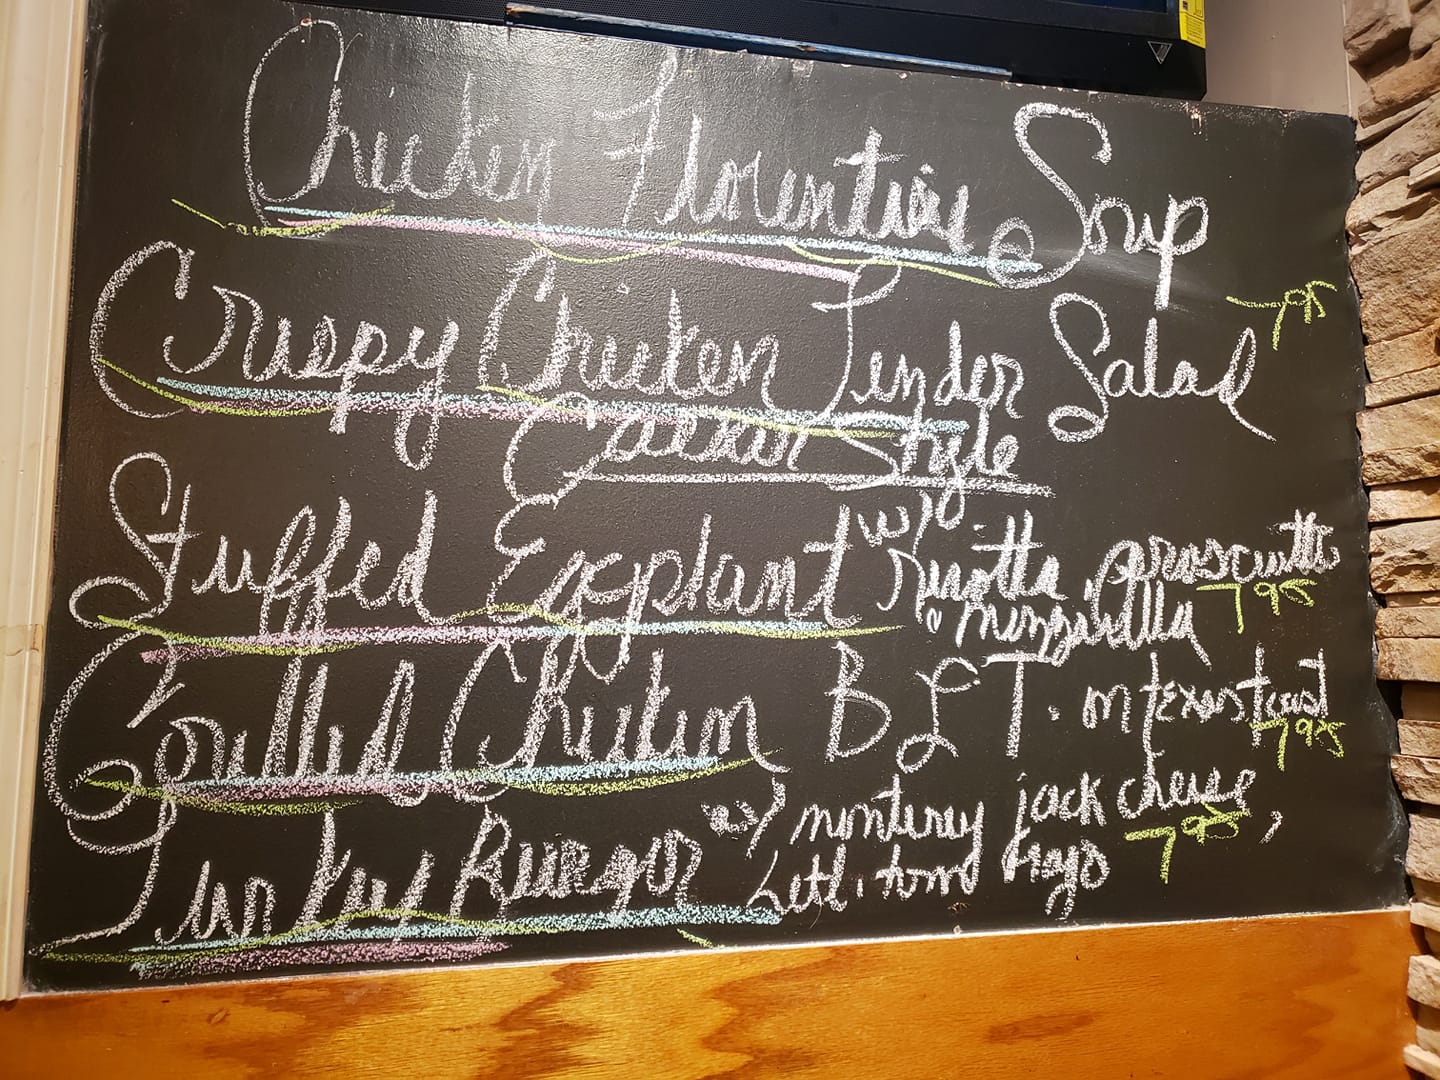 Chicken Florentine Soup
Crispy Chicken Tender Salad 7.95
Caesar Style
Stuffed Eggplant w/ Ricotta, prosciutto
& mozzirella 7.95
Grilled Chicken BLT. on texas toast 7.95
Turkey Burger w/ monterey jack cheese,
Lett. tom 7.95